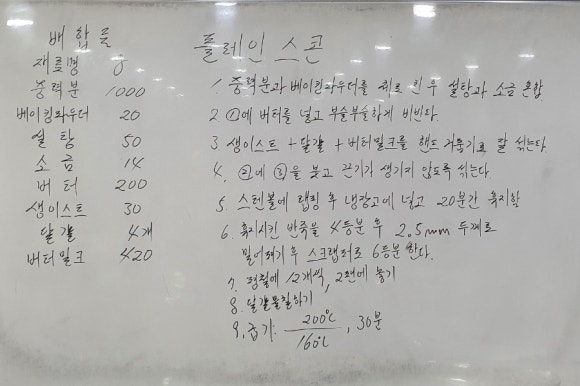 배합률
재료명 g
중력분 1000
베이킹파우더 20
설탕 50
소금 14
버터 200
생이스트 30
달걀 4개
버터밀크 420
플레인 스콘
1. 중력분과 베이킹파우더를 체로 친 후 설탕과 소금 혼합
2. ①에 버터를 넣고 부슬부슬하게 비빈다.
3. 생이스트 + 달걀 + 버터밀크를 핸드 거품기로 잘 섞는다.
4. ②에 ③을 붓고 끈기가 생기지 않도록 섞는다
5. 스텐볼에 랩핑 후 냉장고에 넣고 20분간 휴지함
6. 휴지시킨 반죽을 4등분 후 2.5mm 두께로
밀어펴기 후 스크랩퍼로 6등분 한다.
7. 평철에 12개씩, 2팬에 놓기
8. 달걀물칠하기
9. 굽기: 200℃/160℃, 30분